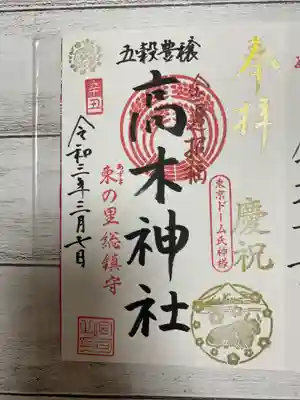 奉拝
慶祝
東京ドーム氏神様
五穀豊穣
高木神社
あずま
東の里総鎮守
令和三年二月七日
辛丑